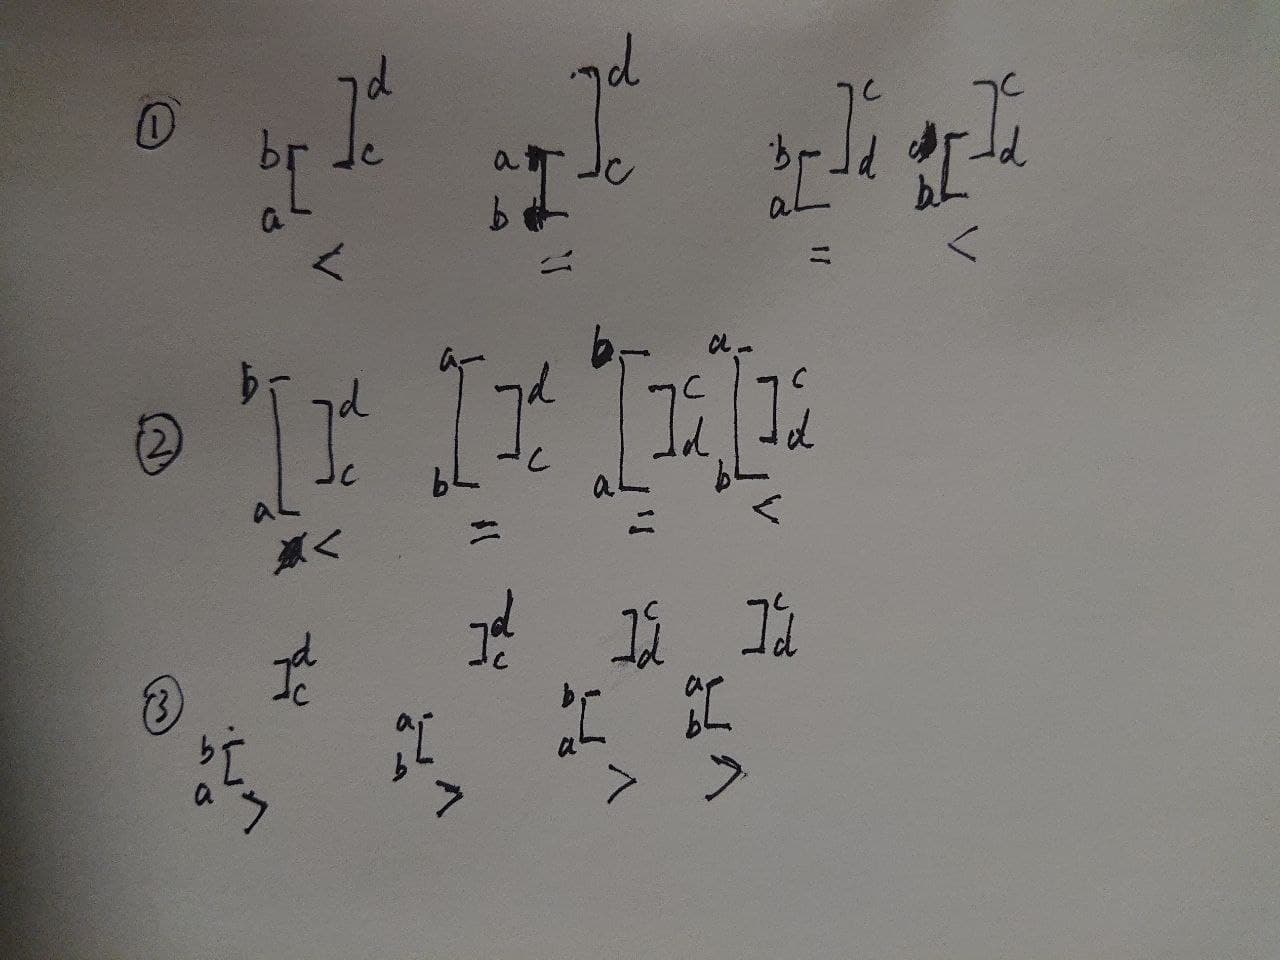 ① b a [ ] d c a b [ ] d c b a [ ] c d b [ ] c d
< = = <
② b a [ ] d c a b [ ] d c b a [ ] c d a b [ ] c d
< = = <
③ b a [ ] d c a b [ ] d c b a [ ] c d a b [ ] c d
> > > >